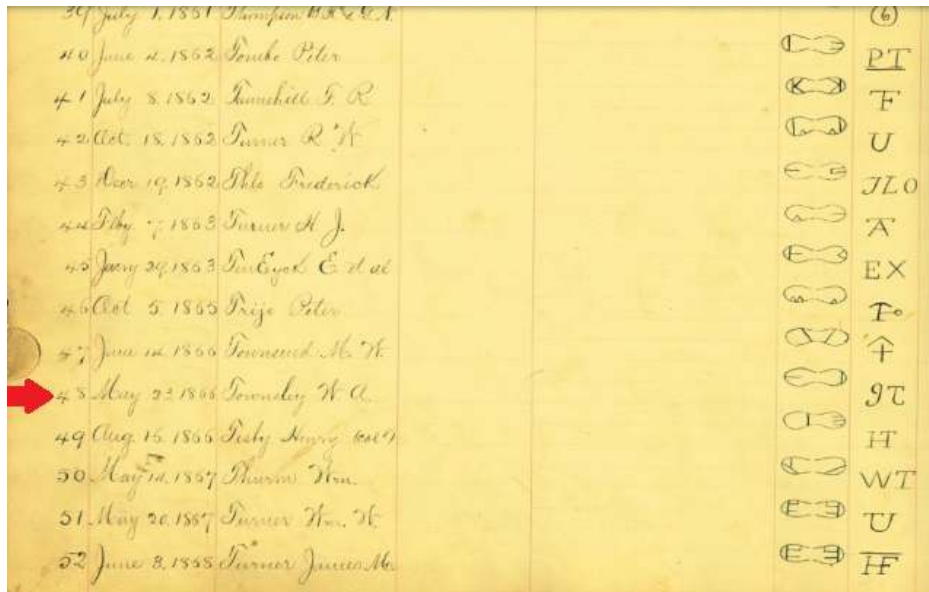 39 July 1, 1861 Thompson
(6)
40 June 4, 1862 Tombo Peter PT
41 July 8, 1862 Tunnehill F. R. TF
42 Oct. 18, 1862 Turner R W U
43 19, 1862 Thlo Frederick JLO
44 Feby 7, 1863 Turner H. J. A
45 Jany 29, 1863 TenEyck E. et al EX
46 Oct 5 1865 Peter To
47 June 14 1866 Townsend M. W.
48 May 23 1866 Townsley W. A. 9T
49 Aug. 15, 1866 Henry HT
50 May 14, 1867 Thurm Wm. WT
51 May 20, 1867 Turner Wm. W. TU
52 June 8, 1868 Turner James M. HF